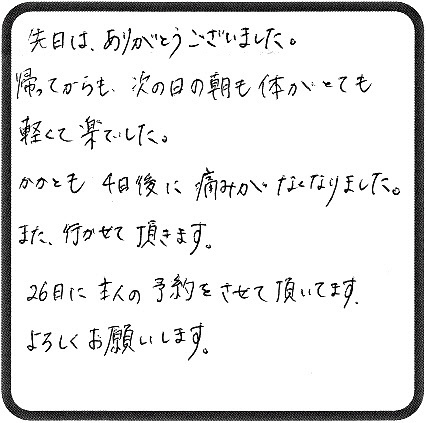 先日は、ありがとうございました。
帰ってからも、次の日の朝も体がとても
軽くて楽でした。
かかとも 4日後に 痛みが なくなりました。
また、行かせて 頂きます。
26日に 主人の 予約をさせて 頂いてます。
よろしく お願いします。